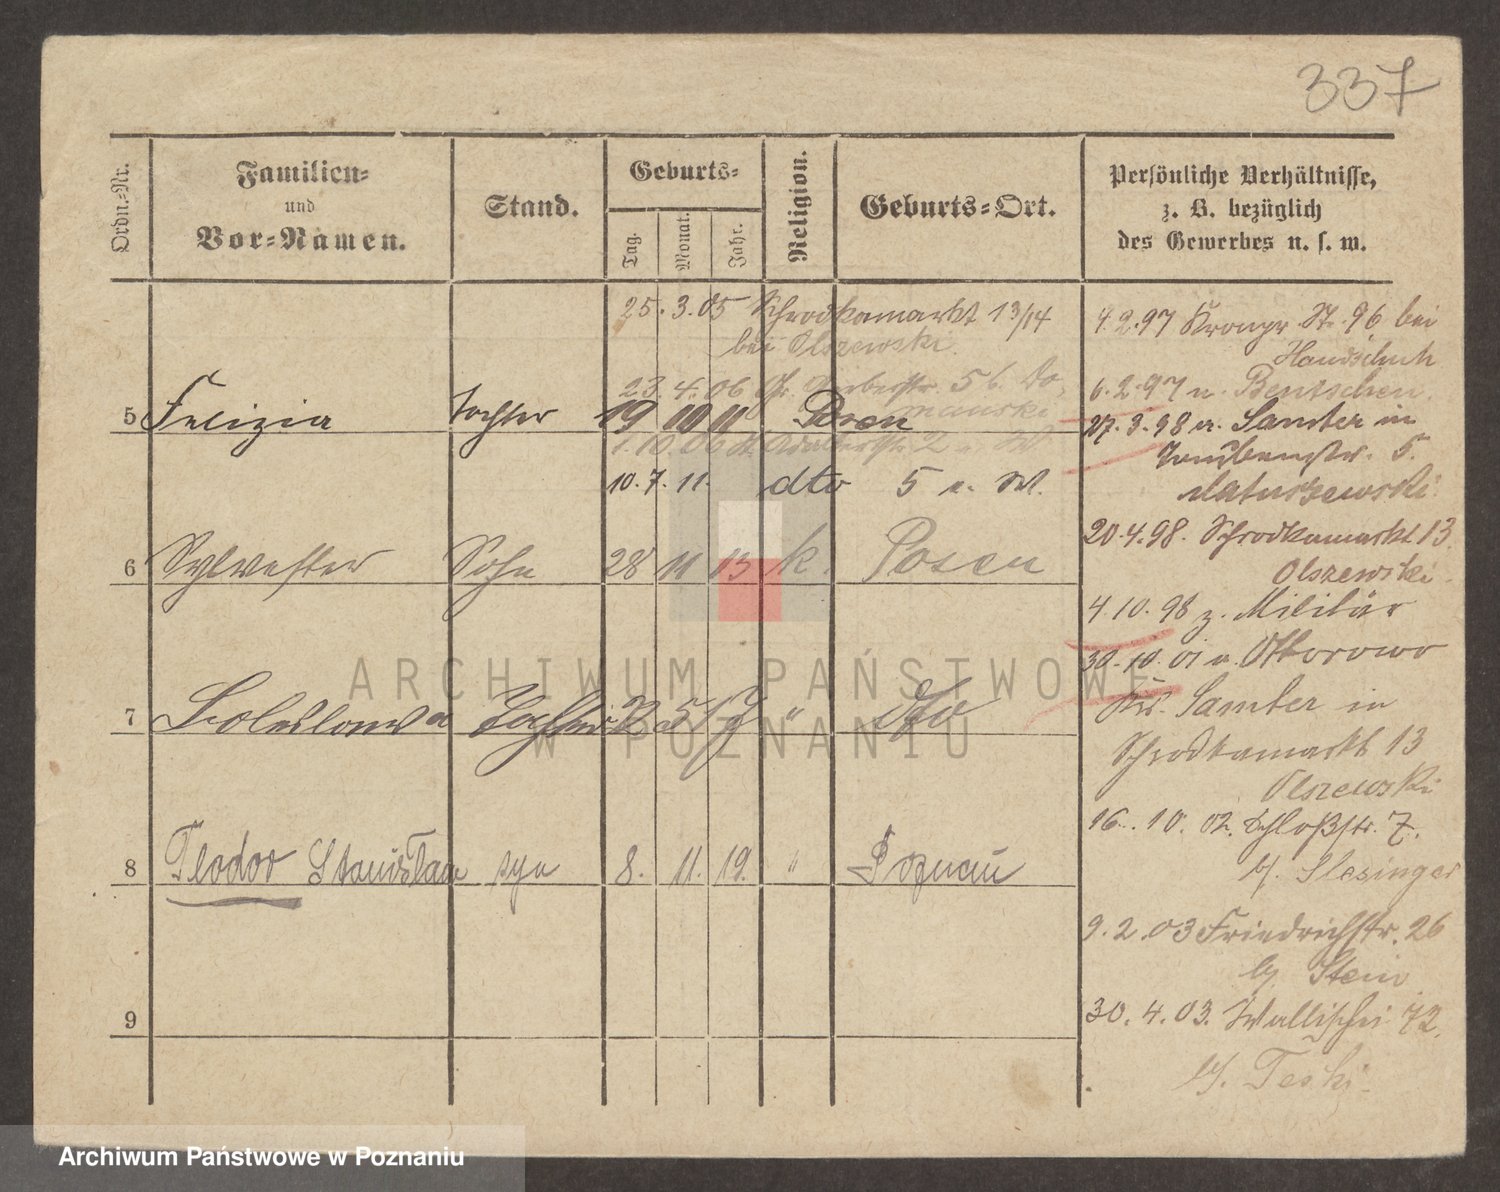 337
Ordn.-Nr.
Familien-
und
Vor-Namen.
Stand.
Geburts-
Tag.
Monat.
Jahr.
Religion.
Geburts-Ort.
Persönliche Verhältnisse,
z. B. bezüglich
des Gewerbes u. s. w.
25. 3. 05 Schrodkamarkt 13/14
bei Olszewski
23. 4. 06 56.
5 Felizia Tochter 19 10 11 Posen
1. 10. 06 St. Adalbertstr. 2
10. 7. 11. dto 5 n. W.
6 Sylvester Sohn 28 11 13 k. Posen
7 Boleslawa Tochter " dto
8 Teodor Stanisław syn 8. 11. 19. " Poznań
9
4.2.97 Kronpr. Str. 96 bei
Handschuh
6.2.97 n. Bentschen
27. 3. 98 a. Samter in
5.
Matuszewski
20.4.98. Schrodkamarkt 13
Olszewski.
4.10.98 z. Militär
30.10.01 n. Ottorowo
Kr. Samter in
Schrodkamarkt 13
Olszewski
16. 10. 02. Schloßstr. 7.
b/. Slesinger
9. 2. 03 Friedrichstr. 26
b/. Stein
30. 4. 03. Wallischei 72.
b/. Teski
ARCHIWUM PAŃSTWOWE
W POZNANIU
Archiwum Państwowe w Poznaniu